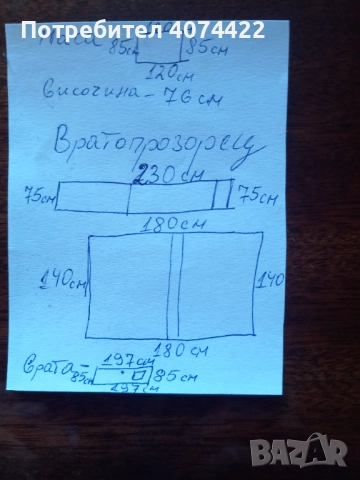 Потребител 4074422
Маса
85см 85см
120см
височина - 76 см
Вратопрозорец
230 см
75см 75см
180 см
140см 140
180 см
Врата -
197см
85см 85 см
197см
BAZAR